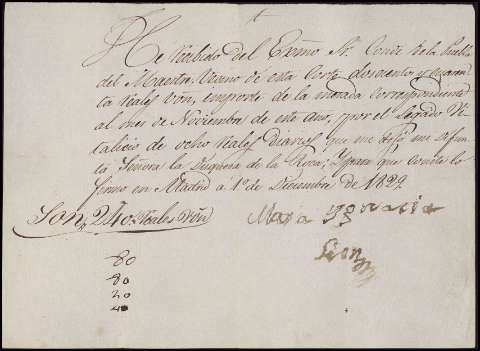 He Recibido del Exmo. Sr. Conde de la Puebla
del Maestre Vecino de esta Corte doscientos y quaren-
ta Reales Vón, importe de la mesada correspondiente
al mes de Noviembre de este año, por el Legado Vi-
talicio de ocho Reales Diarios que me dejó mi difun-
ta Señora la Duquesa de la Roca; Ypara que conste lo
firmo en Madrid a 1º de Diciembre de 1829
Son 240 Reales Vón
Maria Ygnacia
80
80
20
40